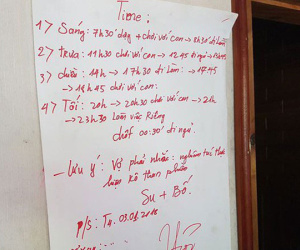 Time:
1) Sáng: 7h30 dạy + chơi với con → 8h30 đi làm
2) Trưa: 11h30 chơi với con → 12h45 đi ngủ
3) Chiều: 14h → 17h30 đi làm → 17h45
→ 18h45 chơi với con.
4) Tối: 20h → 20h30 chơi với con → 21h
→ 23h30 làm việc riêng
chốt 00:30' đi ngủ.
- Lưu ý: Vợ phải nhắc nghiêm túc thực
hiện kế
Su + Bố.
P/S: T4. 03.01.2018